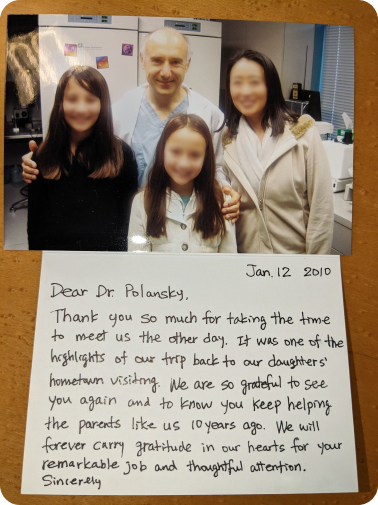 Jan. 12 2010
Dear Dr. Polansky,
Thank you so much for taking the time
to meet us the other day. It was one of the
highlights of our trip back to our daughters'
hometown visiting. We are so grateful to see
you again and to know you keep helping
the parents like us 10 years ago. We will
forever carry gratitude in our hearts for your
remarkable job and thoughtful attention.
Sincerely